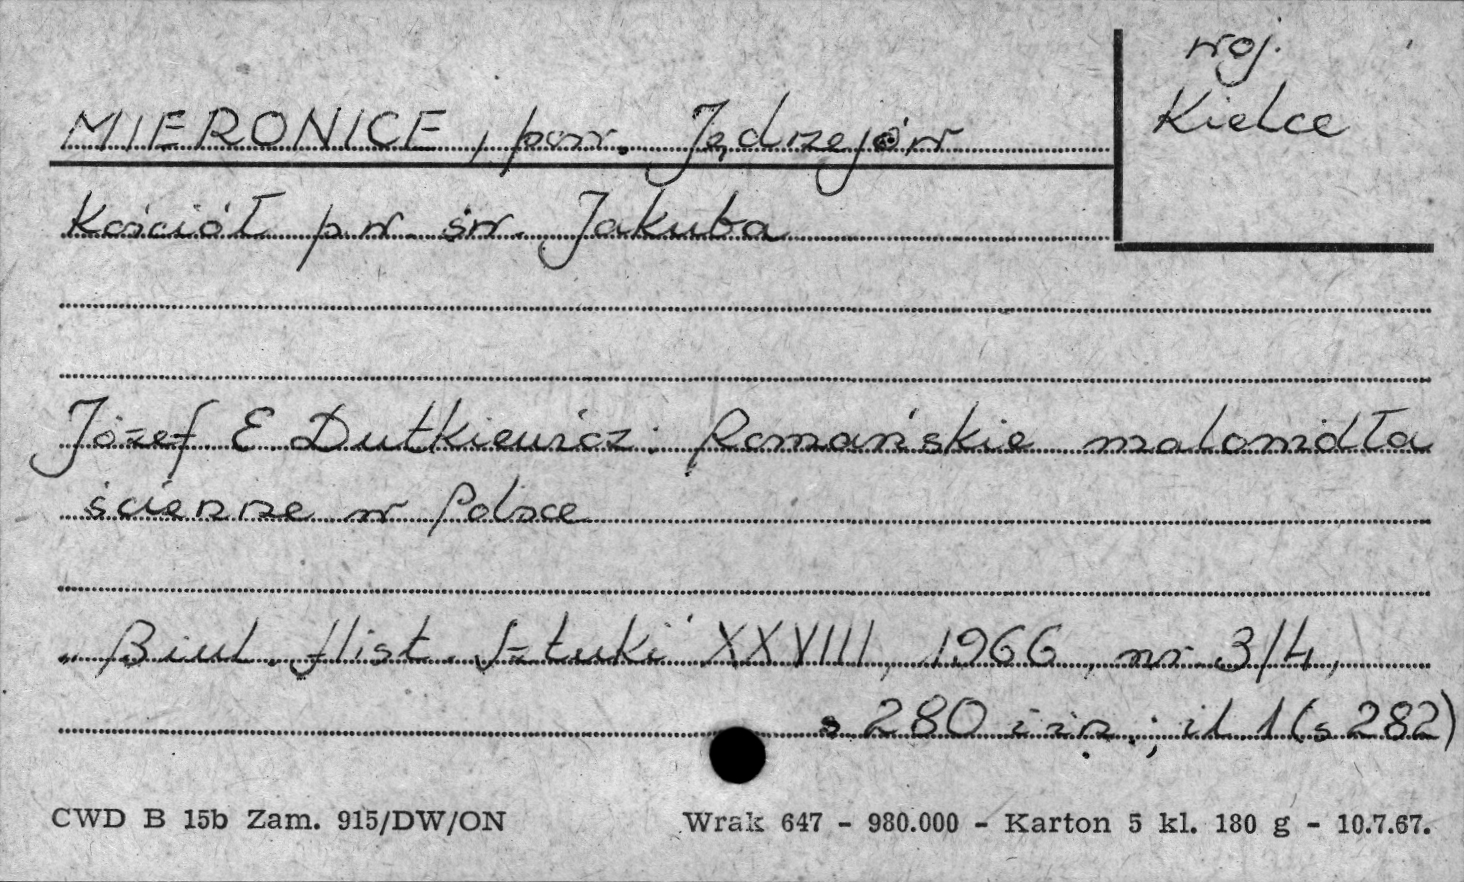 woj.
Kielce
MIERONICE, pow. Jędrzejów
Kościół p.w. św. Jakuba
Józef E Dutkiewicz: Romańskie malowidła
ścienne w Polsce
„Biul. Hist. Sztuki" XXVIII, 1966, nr 3/4,
s 280 i in.; il. 1 (s 282)
CWD B 15b Zam. 915/DW/ON Wrak 647 - 980.000 - Karton 5 kl. 180 g - 10.7.67.